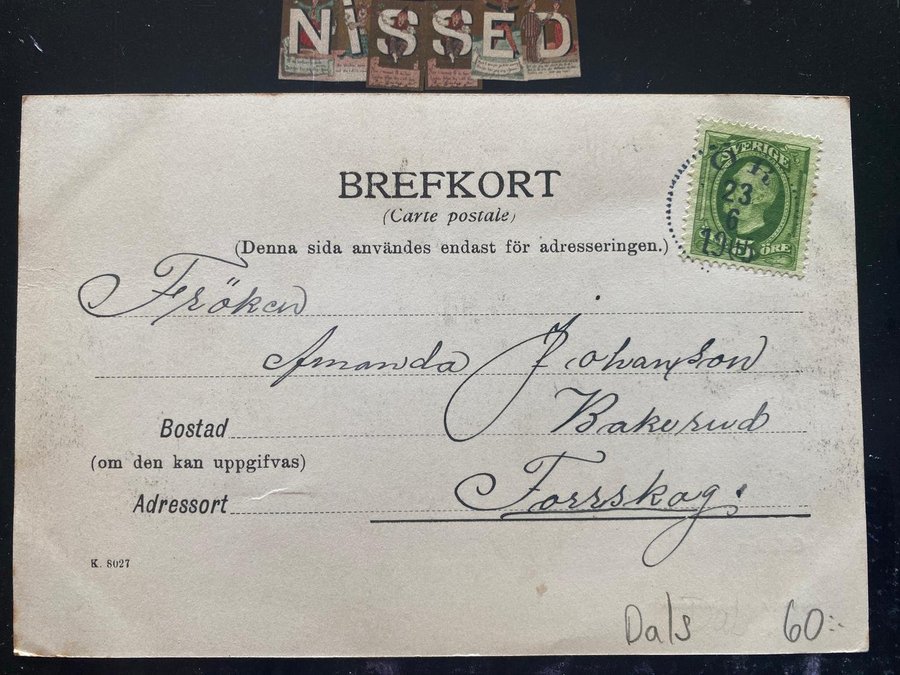 NISSED
BREFKORT
(Carte postale)
(Denna sida användes endast för adresseringen.)
SVERIGE
ÖRE
23
6
1905
Fröken
Amanda Johanson
Bostad
Bakerud
(om den kan uppgifvas)
Adressort
Forrskog.
K. 8027
Dals
60:-